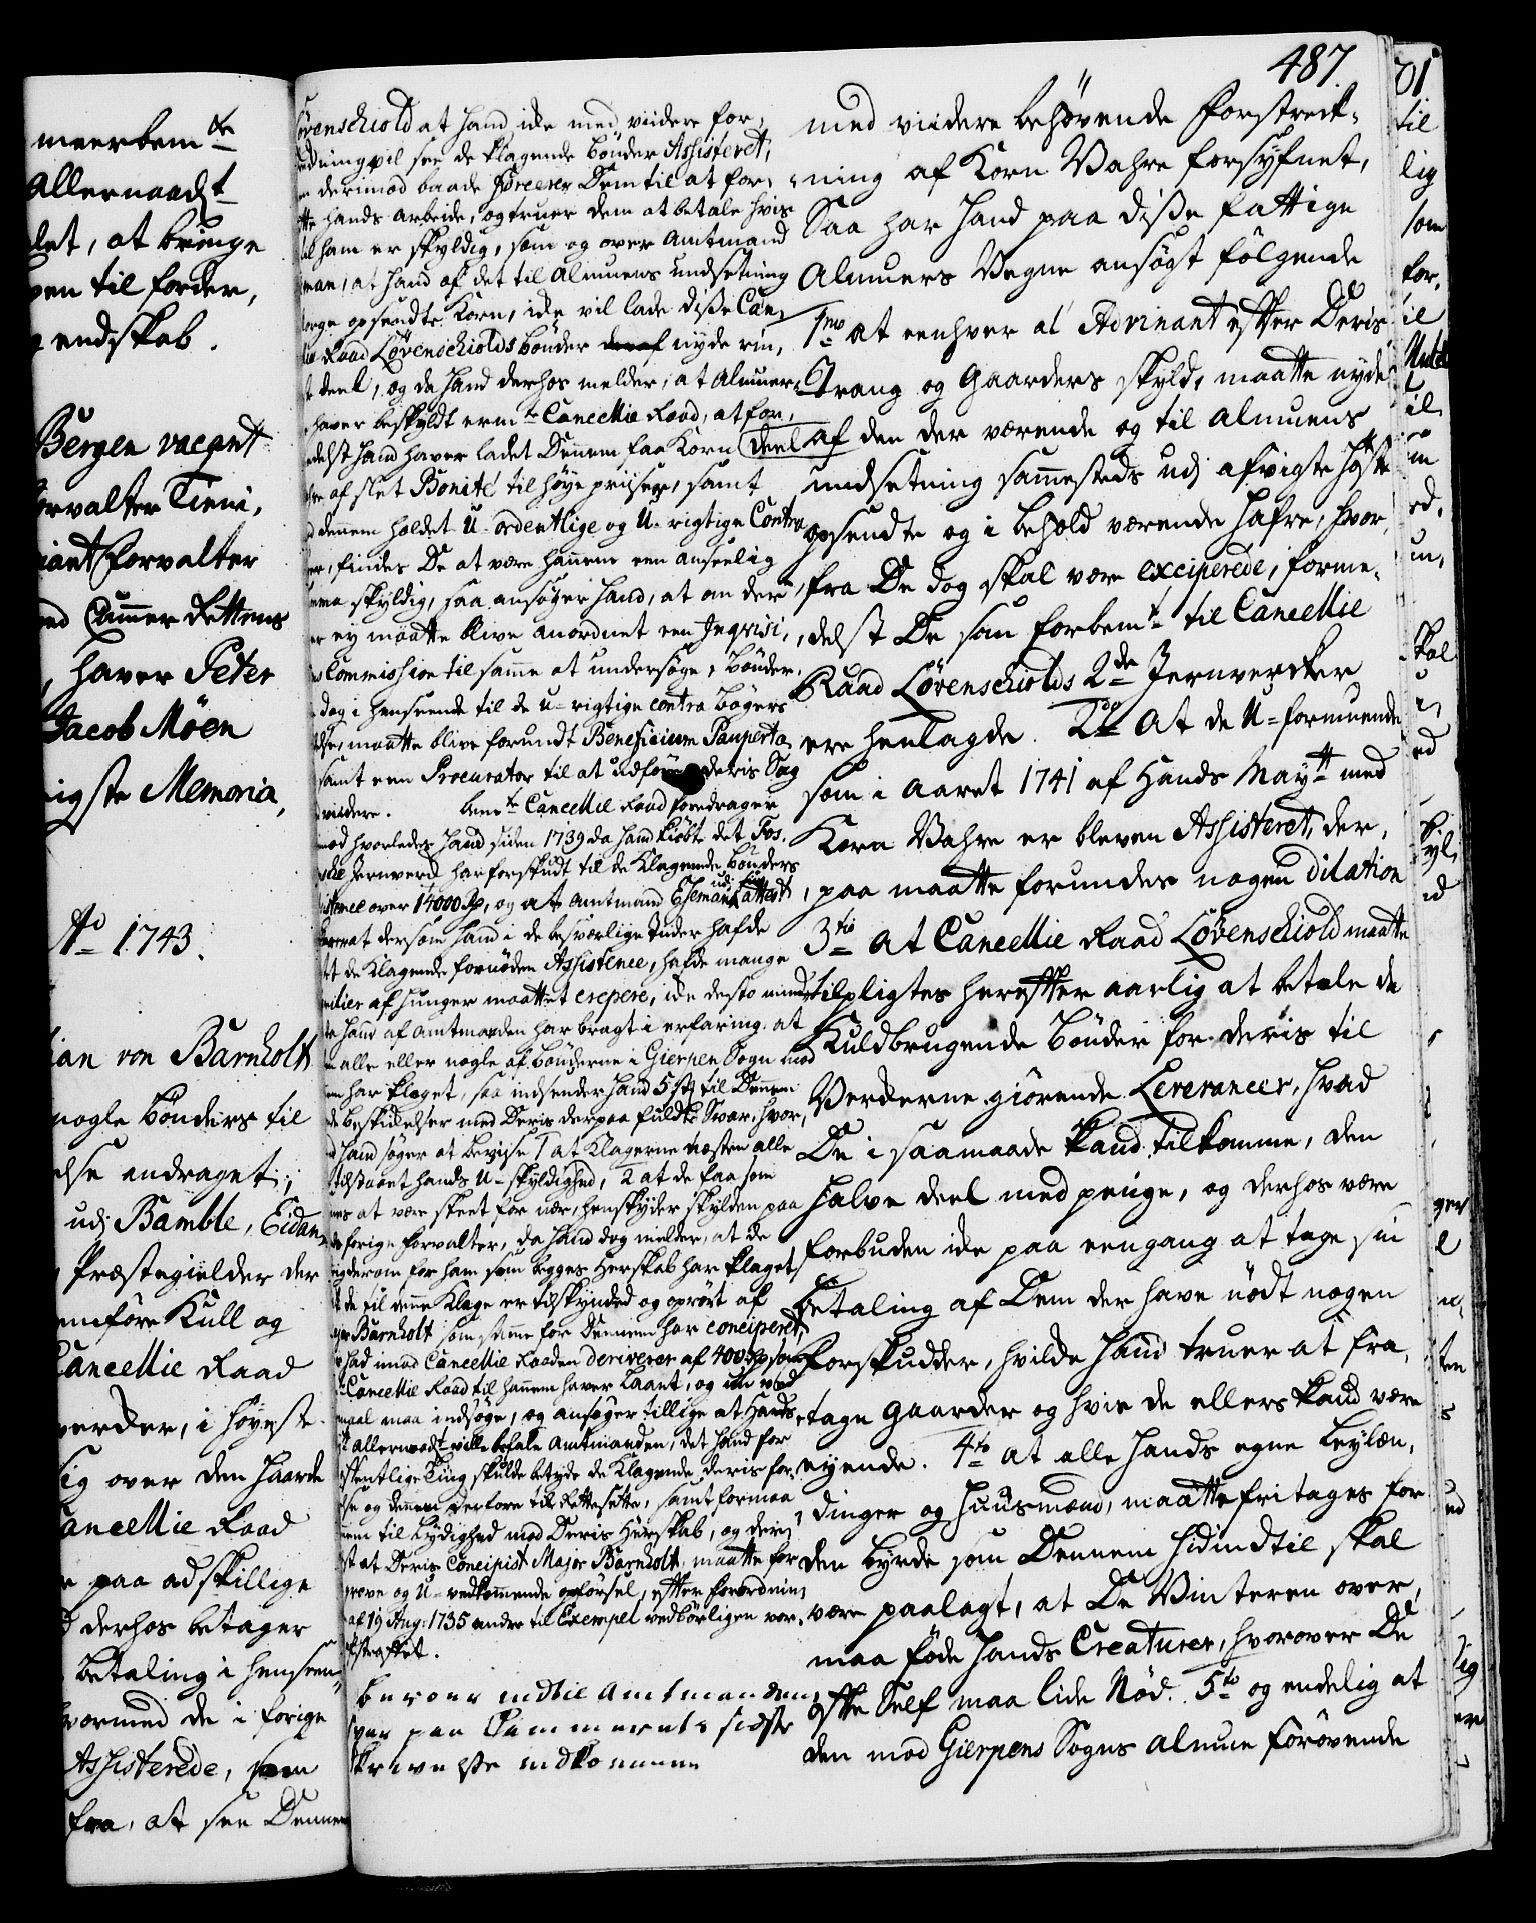 487.
meerbem.te
allernaadt
det, at bringe
ven til forder,
endskab.
Bergen vacant
forvalter Tieni,
iant forvalter
ved Cammer Rettens
haver Peter
Jacob Möen
rigste Memoria,
Ao 1743.
ian von Barnholt
nogle bönders til
else andraget;
udi Bamble, Eidan,
Præstegielder der
emföre Kull og
Cancellie Raad
verker, i höyest
sig over den haarde
Cancellie Raad
paa adskillige
derhos betager
betaling i henseen,
hvormed de i forige
Assisterede, som
fra, at see Dennem
övenschiold at hand icke med viidere for,
edning vil see de klagende bönder Assisteret,
dermod baade forcerer Dem til at for,
hands arbeide, og truer dem at betale hvis
ham er skyldig, som og over Amtmand
man, at hand af det til Almuens undsetning
orge opsendte Korn, icke vil lade disse Can,
Raad Lövenschiolds bönder nyde rin,
deel, og da hand derhos melder, at Almuen
haver beskyldt ermte Cancellie Raad, at for,
edelst hand haver ladet Dennem faae Korn
af slet Bonité til höye priiser, samt
dennem holdet U-ordentlige og U-rigtige Contra
er, findes De at være hannem een anseelig
skyldig, saa ansöger hand, at om der
ey maatte blive anordnet een Inqvisi,
Commission til samme at undersöge, bönder,
dog i henseende til de U-rigtige contra bögers
maatte blive forundt Beneficium Pauperta,
samt een Procurator til at udföre deris Sag
viidere. bemte Cancellie Raad foredrager
mod hvorledes hand siden 1739 da hand kiöbte det Fos,
Jernverck har forskudt til de Klagende bönders
istence over 14000 Rd, og at Amtmand Ehsman udi sin attest
at dersom hand i de besværlige Tider hafde
de Klagende fornöden Assistence, hafde mange
milier af hunger maattet crepere, icke desto mindre
hand af Amtmanden har bragt i erfaring, at
alle eller nogle af bönderne i Gierpen Sogn mod
har klaget, saa indsender hand 5 st. til Dennem
beskickelser med Deris derpaa fulte Svar, hvor,
hand söger at bevise 1 at Klagerne næsten alle
tilstaaet hands U-skyldighed, 2 at de faa som
at være skeet for nær, henskyder skylden paa
forige forvalter, da hand dog melder, at de
igderom for ham som begges Herskab har klaget,
de til denne Klage er tilskyndet og oprört af
Barnholt som samme for Dennem har conciperet,
had imod Cancellie Raaden deriverer af 400 Rd som
Cancellie Raad til hannem haver laant, og nu ved
maal maa indsöge, og ansöger tillige at Hands
allernaadt ville befale Amtmanden, det hand for
offentlige Ting skulde betyde de Klagende deris for,
og dennem derfore til Rettesette, samt formaa
til Lydighed mod Deris Herskab, og dern,
at Deris Concipist Major Barnholt maatte for
pröve og U-vedkommende opförsel, efter forordnin,
af 19 Aug: 1735 andre til Exempel vedbörligen vor,
straffet.
beroer indtil Amtmandens
svar paa Cammerets sidste
skrivelse indkommer
med viidere behövende forstreck-
ning af Korn Vahre forsyfnet,
Saa har hand paa disse fattige
Almuers Vegne ansögt fölgende
1mo at eenhver à l'Advinant efter Deris
Trang og Gaarders skyld, maatte nyde
deel af den der værende og til Almuens
undsetning sammesteds udi afvigte Höst
opsendte og i behold værende hafre, hvor,
fra De dog skal være exciperede, forme,
delst De som forbemt til Cancellie
Raad Lövenschiolds 2de Jernvercker
ere henlagde. 2do At de U-formuende
som i Aaret 1741 af Hands Maytt med
Korn Vahre er bleven Assisteret, der,
paa maatte forundes nogen dilation
3tio at Cancellie Raad Lövenschiold maatte
tilpligtes herefter aarlig at betale de
Kuldbrugende bönder for deris til
Verckerne giörende Leverancer, hvad
De i saamaade kand tilkomme, den
halve deel med penge, og derhos være
forbuden icke paa eengang at tage sin
betaling af Dem der have nödt nogen
forskudder, hvilcke hand truer at fra,
tage Gaarder og hvis de ellers kand være
eyende. 4to at alle hands egne Leylæn,
dinger og Huusmænd, maatte fritages for
den byrde som Dennem hidindtil skal
være paalagt, at De Vinteren over,
maa föde hands Creaturer, hvorover De
ofte Self maa lide Nöd. 5to og endelig at
den mod Gierpens Sogns Almue forövende
til
lig
som
for,
til
skal